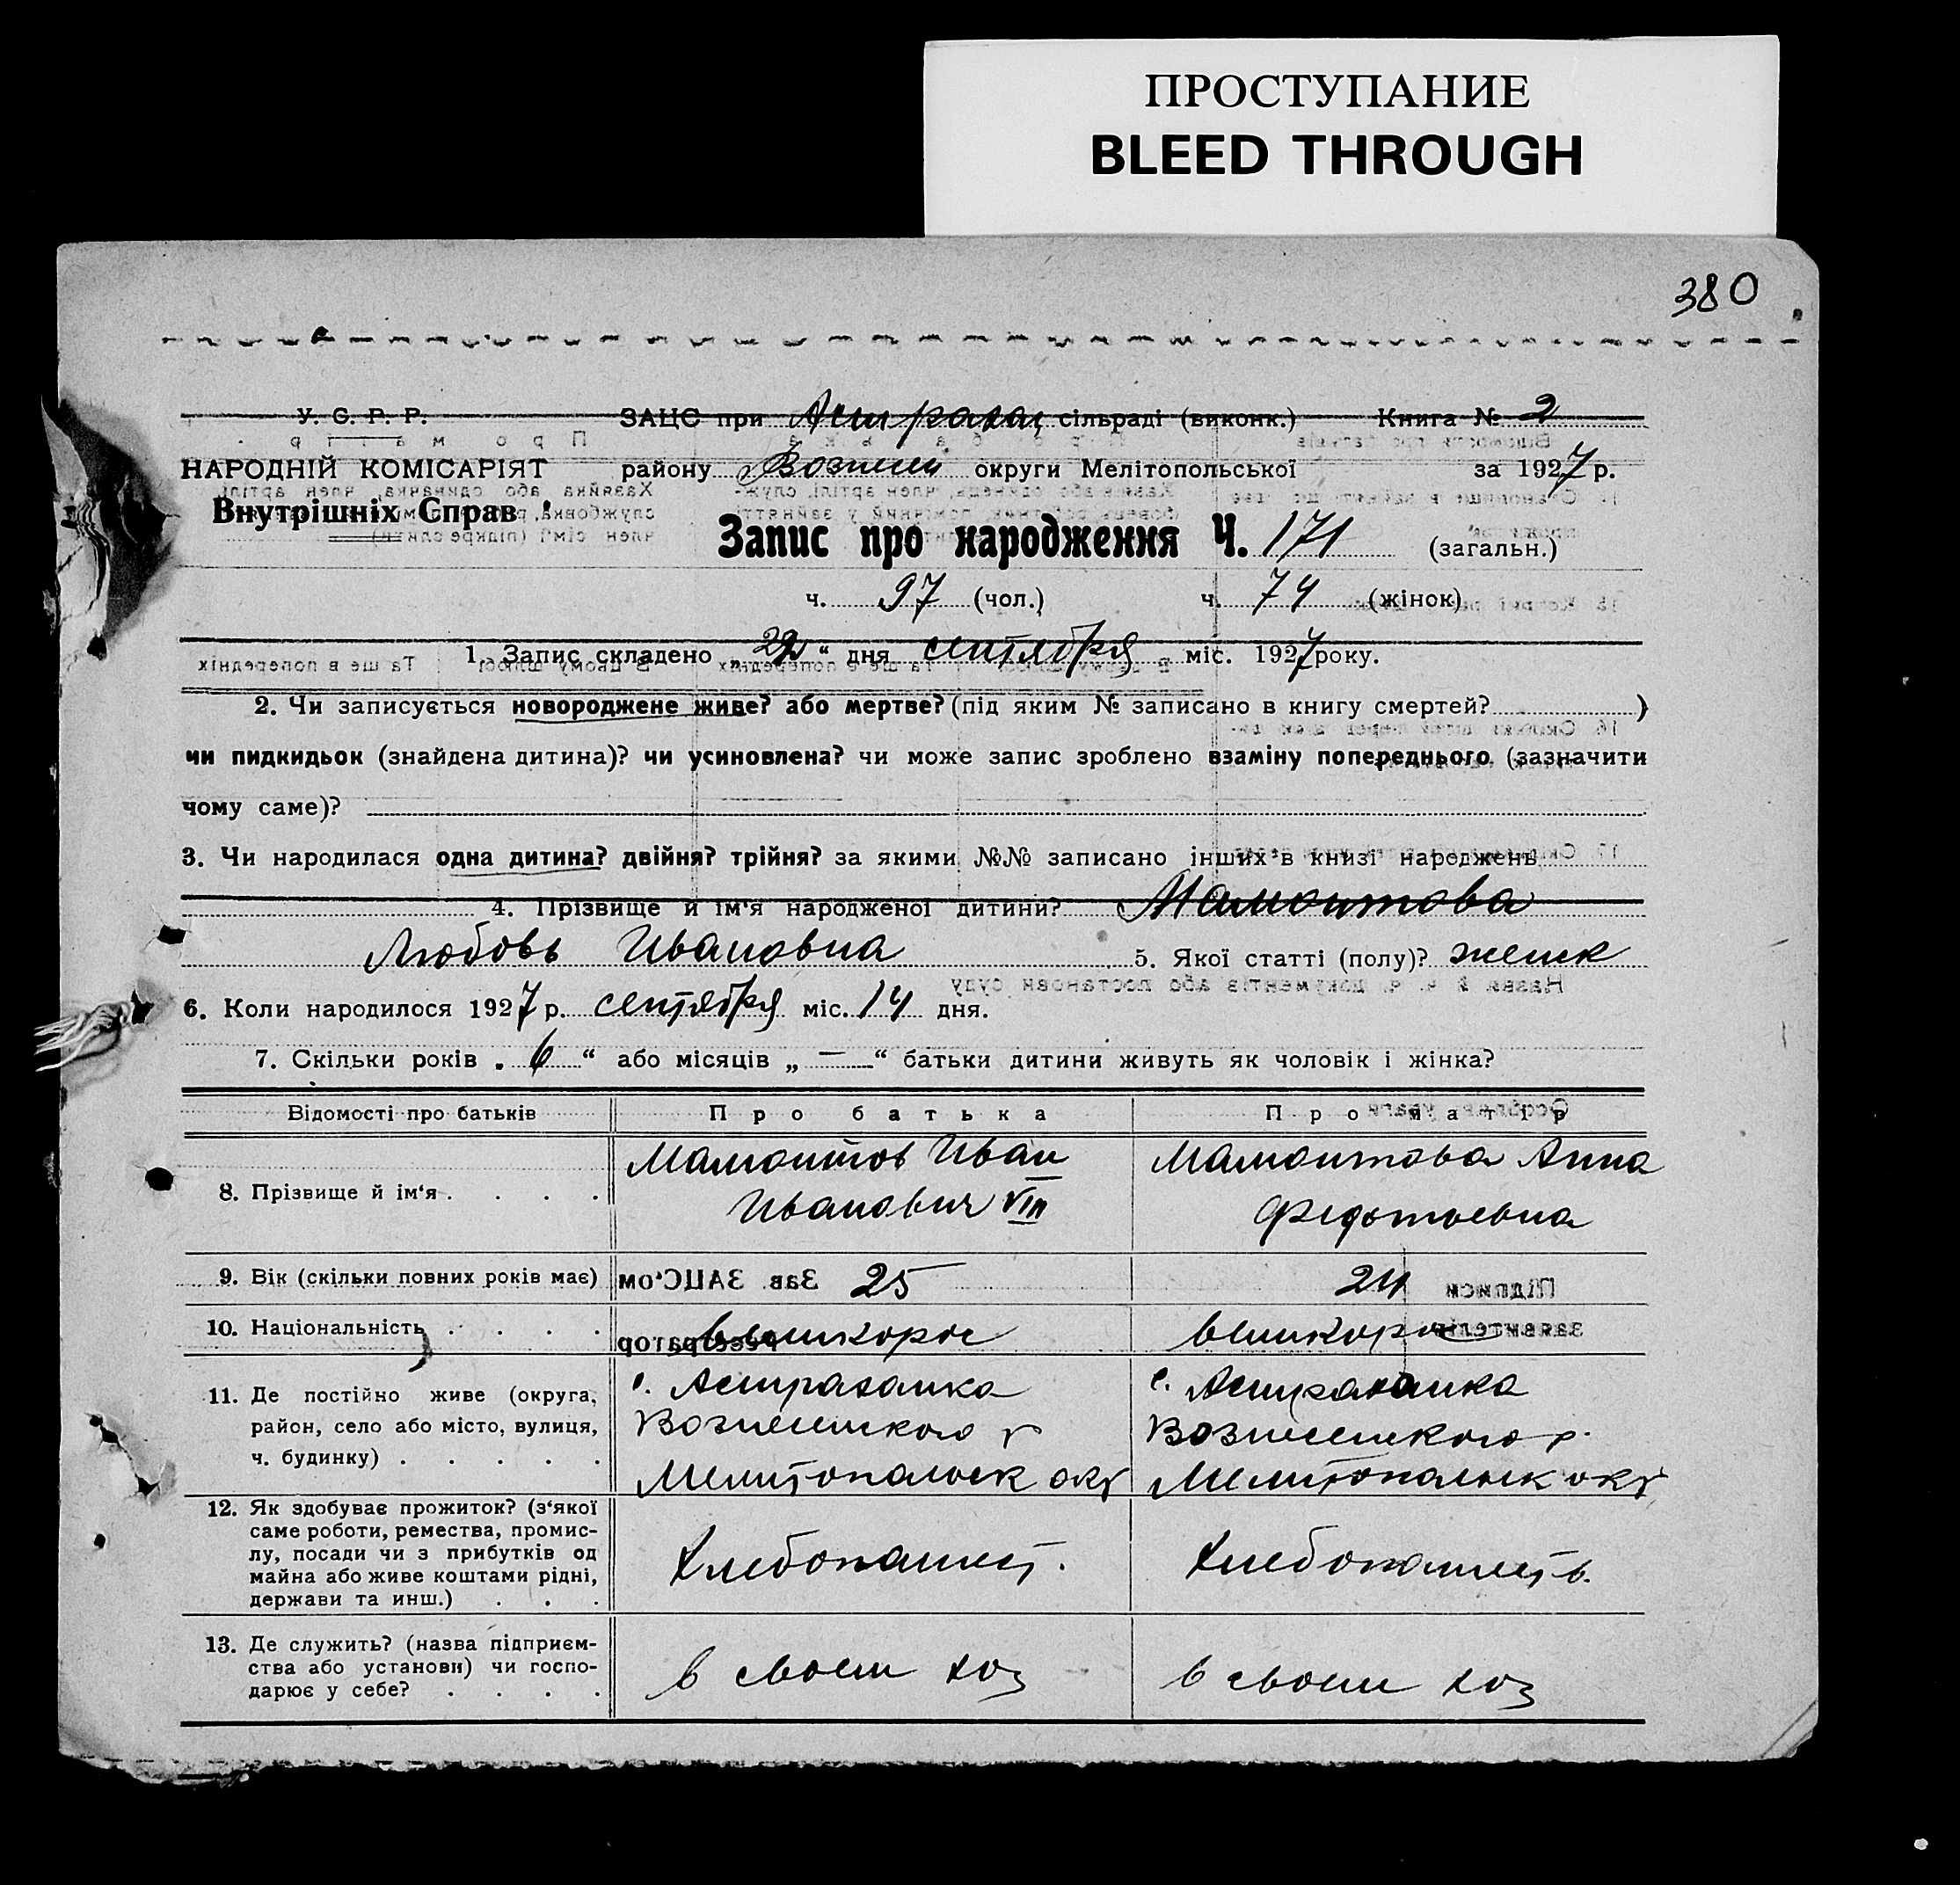 ПРОСТУПАНИЕ
BLEED THROUGH
380
У. С. Р. Р. ЗАЦС при Астрахан сільраді (виконк.) Книга № 2
НАРОДНІЙ КОМІСАРІЯТ району Вознесен округи Мелітопольської за 1927 р.
Внутрішніх Справ
Запис про народження Ч. 171 (загальн.)
ч. 97 (чол.) ч. 74 (жінок)
1. Запис складено „22“ дня сентября міс. 1927 року.
2. Чи записується новороджене живе? або мертве? (під яким № записано в книгу смертей? )
чи пидкидьок (знайдена дитина)? чи усиновлена? чи може запис зроблено взаміну попереднього (зазначити
чому саме)?
3. Чи народилася одна дитина? двійня? трійня? за якими №№ записано інших в книзі народжень
4. Прізвище й ім'я народженої дитини? Мамонтова
Любовь Ивановна 5. Якої статті (полу)? женск
6. Коли народилося 1927 р. сентября міс. 14 дня.
7. Скільки років „6“ або місяців „—“ батьки дитини живуть як чоловік і жінка?
Відомості про батьків Про батька Про матір
8. Прізвище й ім'я . . . . Мамонтов Иван Мамонтова Анна
Иванович VIII Федотьевна
9. Вік (скільки повних років має) 25 24
10. Національність . . . . великорос великорос
11. Де постійно живе (округа, с. Астраханка с. Астраханка
район, село або місто, вулиця, Вознесенского р Вознесенского р.
ч. будинку) . . . . . Мелитопольск окр Мелитопольск окр
12. Як здобуває прожиток? (з'якої
саме роботи, ремества, промис-
лу, посади чи з прибутків од Хлебопашест. Хлебопашеств.
майна або живе коштами рідні,
держави та инш.) . . .
13. Де служить? (назва підприєм-
ства або установи) чи госпо- в своем хоз в своем хоз
дарює у себе? . . . .